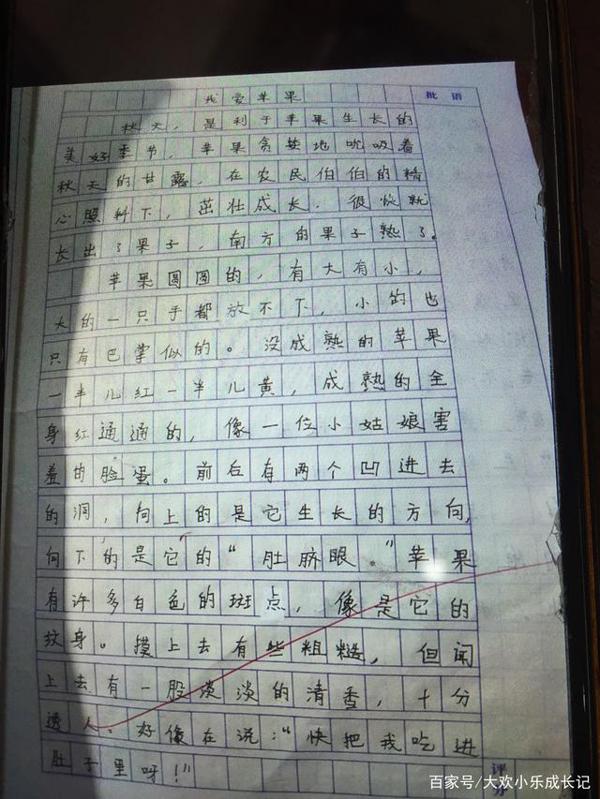 我爱苹果
批语
秋天，是利于苹果生长的
美好季节，苹果贪婪地吮吸着
秋天的甘露，在农民伯伯的精
心照料下，茁壮成长，很快就
长出了果子，南方的果子熟了。
苹果圆圆的，有大有小，
大的一只手都放不下，小的也
只有巴掌似的。没成熟的苹果
一半儿红一半儿黄，成熟的全
身红通通的，像一位小姑娘害
羞的脸蛋。前后有两个凹进去
的洞，向上的是它生长的方向，
向下的是它的“肚脐眼。”苹果
有许多白色的斑点，像是它的
纹身。摸上去有些粗糙，但闻
上去有一股淡淡的清香，十分
透人。好像在说：“快把我吃进
肚子里呀！”
百家号/大欢小乐成长记